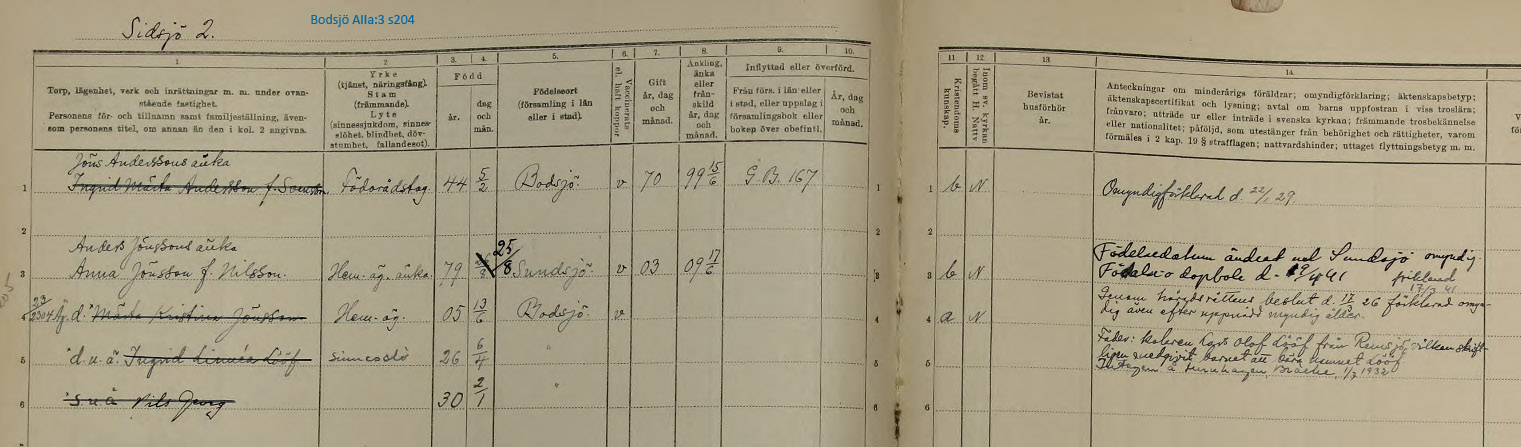 Bodsjö AIIa:3 s204
Sidsjö 2.
1 2 3. 4. 5. 6. 7. 8. 9. 10.
Torp, lägenhet, verk och inrättningar m. m. under ovan-
stående fastighet.
Personens för- och tillnamn samt familjeställning, även-
som personens titel, om annan än den i kol. 2 angivna.
Yrke
(tjänst, näringsfång).
Stam
(främmande).
Lyte
(sinnessjukdom, sinnes-
slöhet, blindhet, döv-
stumhet, fallandesot).
Född
år.
dag
och
mån.
Födelseort
(församling i län
eller i stad).
Vaccinerats
el. haft koppor.
Gift
år, dag
och
månad.
Änkling,
änka
eller
från-
skild
år, dag
och
månad.
Inflyttad eller överförd.
Från förs. i län eller
i stad, eller uppslag i
församlingsbok eller
bokep över obefintl.
År, dag
och
månad.
11 12 13. 14.
Kristendoms
kunskap.
Inom sv. kyrkan
begått H. Nattv
Bevistat
husförhör
år.
Anteckningar om minderårigs föräldrar; omyndigförklaring; äktenskapsbetyp;
äktenskapscertifikat och lysning; avtal om barns uppfostran i viss troslära;
frånvaro; utträde ur eller inträde i svenska kyrkan; främmande trosbekännelse
eller nationalitet; påföljd, som utestänger från behörighet och rättigheter, varom
förmäles i 2 kap. 19 § strafflagen; nattvardshinder; uttaget flyttningsbetyg m. m.
Jöns Anderssons änka
1 Ingrid Märta Andersson f. Svensson Födorådstag. 44 5/2 Bodsjö v 70 99 15/6 G.B. 167 1
1 b N Omyndigförklarad d. 22/1 29.
2 2 2
Anders Jönssons änka
3 Anna Jönsson f. Nilsson. Hem.äg. änka 79 25/8 Sundsjö v 03 09 17/6 3
3 b N Födelsedatum ändrat enl Sundsjö omyndig
Födelse o dopbok d. 19/4 41 förklarad
17/2 41
4 d. Märta Kristina Jönsson Hem.äg. 05 13/6 Bodsjö v 4
4 a N Genom häradsrättens beslut d. 17/2 26 förklarad omyn-
dig även efter uppnådd myndig ålder.
5 d.u.ä. Ingrid Linnéa Lööf. sinnesslö 26 6/4 " 5
5 Fader: kolaren Lars Olof Lööf från Remsjö, vilken skrift-
ligen medgivit barnet att bära namnet Lööf
Intagen å Furuhagen, Bräcke, 1/7 1932
6 s.u.ä Nils Georg 30 2/1 " 6
6